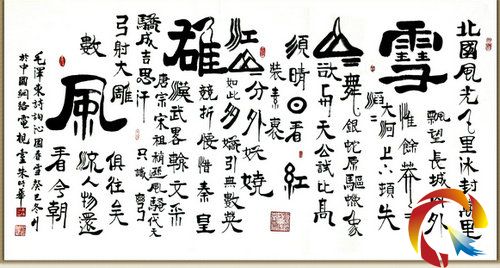 北國風光千里冰封萬里
雪飄望長城内外
惟餘莽莽
大河上下頓失
滔滔
山舞銀蛇原馳蠟象
欲與天公試比高
須晴日看紅
裝素裹
分外妖嬈
江山
如此多嬌引無數英
雄競折腰惜秦皇
漢武略輸文采
唐宗宋祖稍遜風騷一代天
驕成吉思汗只識彎
弓射大雕
俱往矣
數風流人物還
看今朝
毛澤東詩詞沁園春雪癸巳冬月
於中國網絡電視臺朱明華